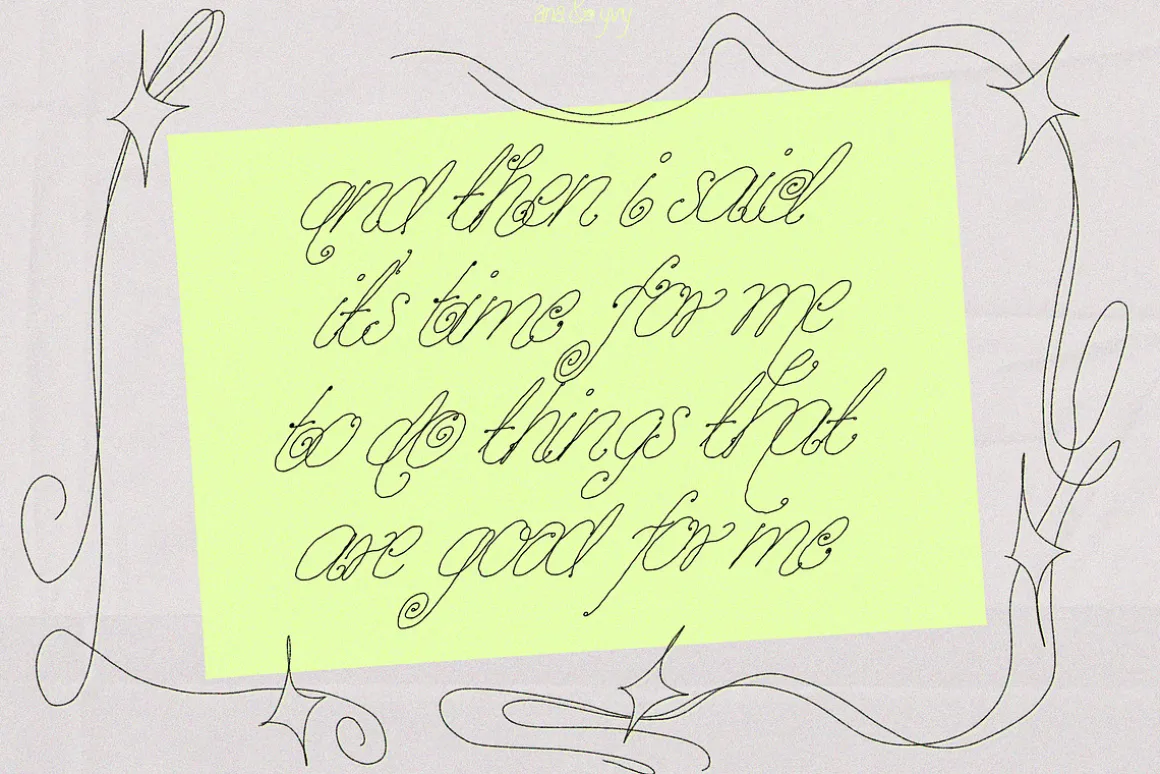 and then i said
it's time for me
to do things that
are good for me